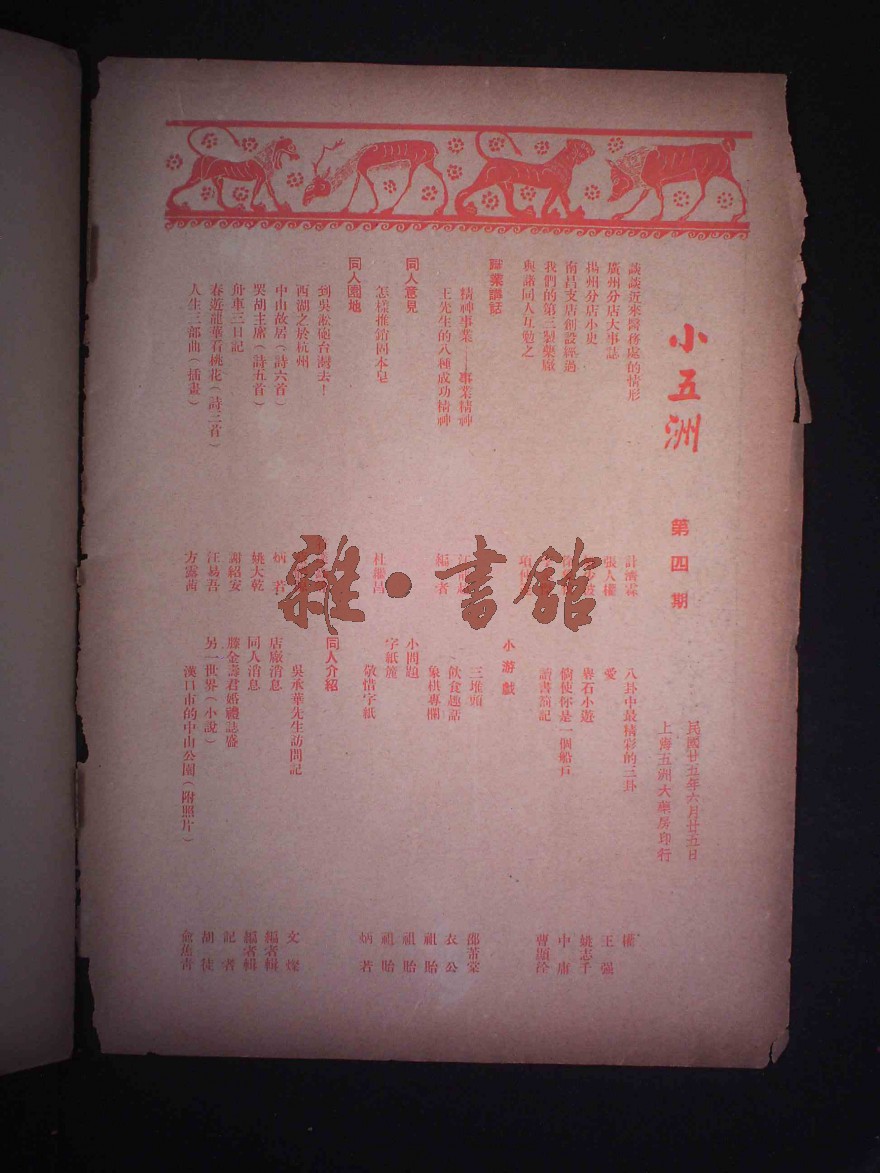 小五洲
第四期
民國廿五年六月廿五日
上海五洲大藥房印行
談談近來醫務處的情形
計濟霖
廣州分店大事誌
張人權
揚州分店小史
南昌支店創設經過
我們的第二製藥廠
與諸同人互勉之
項
職業講話
精神事業——事業精神
王先生的八種成功精神
編者
同人意見
怎樣推銷固本皂
杜繼呂
同人園地
到吳淞砲台灣去!
西湖之於杭州
中山故居(詩六首)
炳若
哭胡主席(詩五首)
姚大乾
舟車三日記
謝紹安
春遊龍華石桃花(詩二首)
汪易吾
人生三部曲(插畫)
方露茜
八卦中最精彩的三卦
權
愛
王強
粵石小遊
姚志千
倘使你是一個船戶
中庸
讀書劄記
曹顯銓
小游戲
三堆頭
邵芾棠
飲食趣話
衣公
象棋專欄
祖貽
小問題
祖貽
字紙簏
祖貽
敬惜字紙
炳若
同人介紹
吳承華先生訪問記
文燦
店廠消息
編者輯
同人消息
編者輯
滕金壽君婚禮誌盛
記者
另一世界(小說)
胡徒
漢口市的中山公園(附照片)
俞施靑
雜·書館